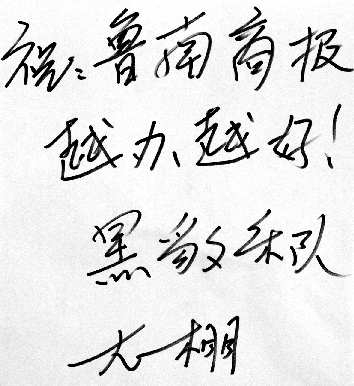 祝：鲁南商报
越办越好！
黑敬乐队
大棚